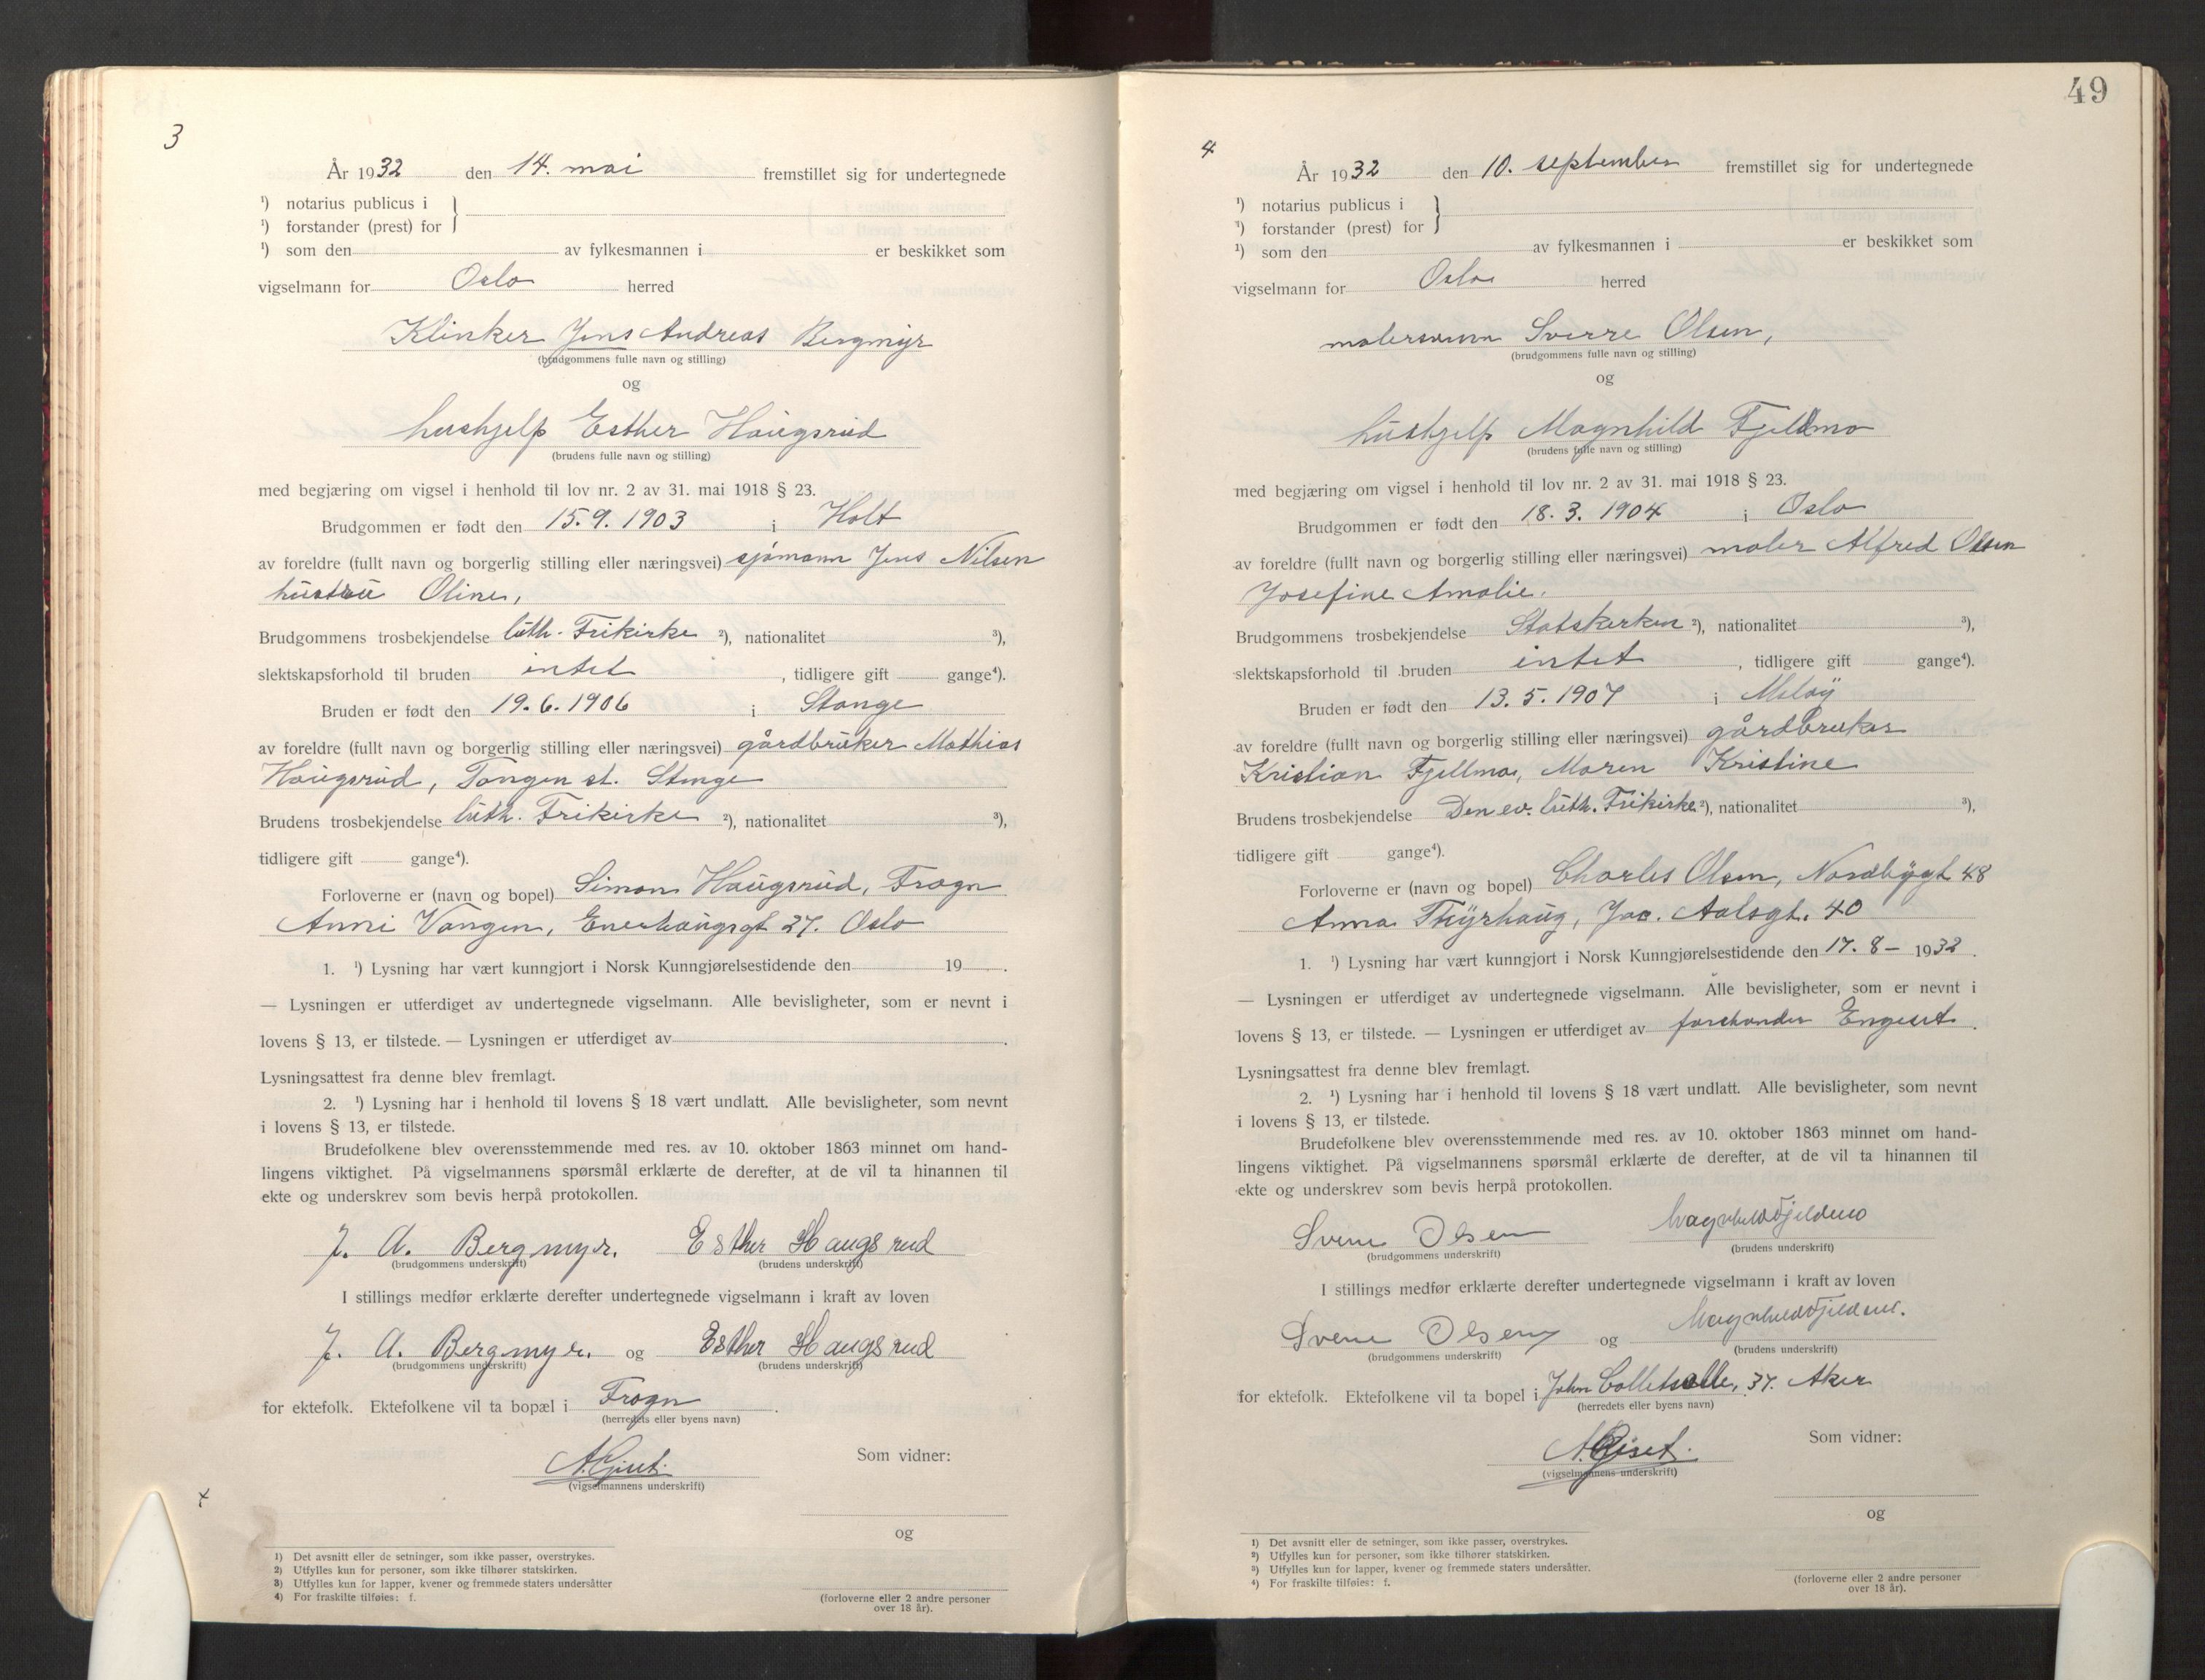 3
År 1932 den 14. mai fremstillet sig for undertegnede
¹) notarius publicus i }
¹) forstander (prest) for }
¹) som den av fylkesmannen i er beskikket som
vigselmann for Oslo herred
Klinker Jens Andreas Bergmyr
(brudgommens fulle navn og stilling)
og
hushjelp Esther Haugsrud
(brudens fulle navn og stilling)
med begjæring om vigsel i henhold til lov nr. 2 av 31. mai 1918 § 23.
Brudgommen er født den 15.9.1903 i Holt
av foreldre (fullt navn og borgerlig stilling eller næringsvei) sjømann Jens Nilsen
hustru Oline,
Brudgommens trosbekjendelse luth. Frikirke ²), nationalitet ³),
slektskapsforhold til bruden intet , tidligere gift gange⁴).
Bruden er født den 19.6.1906 i Stange
av foreldre (fullt navn og borgerlig stilling eller næringsvei) gårdbruker Mathias
Haugsrud, Tangen st. Stange
Brudens trosbekjendelse luth. Frikirke ²), nationalitet ³),
tidligere gift gange⁴).
Forloverne er (navn og bopel) Simon Haugsrud, Frogn
Anni Vangen, Enerhaugsgt 27. Oslo
1. ¹) Lysning har vært kunngjort i Norsk Kunngjørelsestidende den 19 .
— Lysningen er utferdiget av undertegnede vigselmann. Alle bevisligheter, som er nevnt i
lovens § 13, er tilstede. — Lysningen er utferdiget av .
Lysningsattest fra denne blev fremlagt.
2. ¹) Lysning har i henhold til lovens § 18 vært undlatt. Alle bevisligheter, som nevnt
i lovens § 13, er tilstede.
Brudefolkene blev overensstemmende med res. av 10. oktober 1863 minnet om hand-
lingens viktighet. På vigselmannens spørsmål erklærte de derefter, at de vil ta hinannen til
ekte og underskrev som bevis herpå protokollen.
J. A. Bergmyr. Esther Haugsrud
(brudgommens underskrift) (brudens underskrift)
I stillings medfør erklærte derefter undertegnede vigselmann i kraft av loven
J. A. Bergmyr. og Esther Haugsrud
(brudgommens underskrift) (brudens underskrift)
for ektefolk. Ektefolkene vil ta bopæl i Frogn .
(herredets eller byens navn)
Som vidner:
A. Giset.
(vigselmannens underskrift)
x
og
1) Det avsnitt eller de setninger, som ikke passer, overstrykes.
2) Utfylles kun for personer, som ikke tilhører statskirken.
3) Utfylles kun for lapper, kvener og fremmede staters undersåtter
4) For fraskilte tilføies: f.
(forloverne eller 2 andre personer
over 18 år).
49
4
År 1932 den 10. september fremstillet sig for undertegnede
¹) notarius publicus i }
¹) forstander (prest) for }
¹) som den av fylkesmannen i er beskikket som
vigselmann for Oslo herred
malersvenn Sverre Olsen,
(brudgommens fulle navn og stilling)
og
hushjelp Magnhild Fjeldmo
(brudens fulle navn og stilling)
med begjæring om vigsel i henhold til lov nr. 2 av 31. mai 1918 § 23.
Brudgommen er født den 18. 3. 1904 i Oslo
av foreldre (fullt navn og borgerlig stilling eller næringsvei) maler Alfred Olsen
Josefine Amalie.
Brudgommens trosbekjendelse Statskirken ²), nationalitet ³),
slektskapsforhold til bruden intet , tidligere gift gange⁴).
Bruden er født den 13. 5. 1907 i Meløy
av foreldre (fullt navn og borgerlig stilling eller næringsvei) gårdbruker
Kristian Fjellmo, Maren Kristine
Brudens trosbekjendelse Den ev. luth. Frikirke ²), nationalitet ³),
tidligere gift gange⁴).
Forloverne er (navn og bopel) Charles Olsen, Nordbygt 48
Anna Thyrhaug, Jac. Aalsgt. 40
1. ¹) Lysning har vært kunngjort i Norsk Kunngjørelsestidende den 17. 8 – 1932 .
— Lysningen er utferdiget av undertegnede vigselmann. Alle bevisligheter, som er nevnt i
lovens § 13, er tilstede. — Lysningen er utferdiget av forstander .
Lysningsattest fra denne blev fremlagt.
2. ¹) Lysning har i henhold til lovens § 18 vært undlatt. Alle bevisligheter, som nevnt
i lovens § 13, er tilstede.
Brudefolkene blev overensstemmende med res. av 10. oktober 1863 minnet om hand-
lingens viktighet. På vigselmannens spørsmål erklærte de derefter, at de vil ta hinannen til
ekte og underskrev som bevis herpå protokollen.
Sverre Olsen Magnhild Fjeldmo
(brudgommens underskrift) (brudens underskrift)
I stillings medfør erklærte derefter undertegnede vigselmann i kraft av loven
Sverre Olsen og Magnhild Fjeldmo.
(brudgommens underskrift) (brudens underskrift)
for ektefolk. Ektefolkene vil ta bopel i John Colletsalle, 37. Aker
(herredets eller byens navn)
Som vidner:
A. Giset.
(vigselmannens underskrift)
og
1) Det avsnitt eller de setninger, som ikke passer, overstrykes.
2) Utfylles kun for personer, som ikke tilhører statskirken.
3) Utfylles kun for lapper, kvener og fremmede staters undersåtter.
4) For fraskilte tilføies: f.
(forloverne eller 2 andre personer
over 18 år).